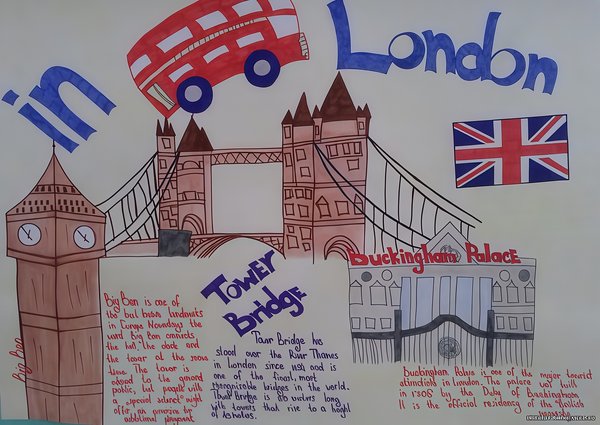 in
London
Big Ben
Big Ben is one of
the best known landmarks
in Europe Nowadays the
word Big Ben connects
the bell, the clock and
the tower at the same
time. The tower is
closed to the general
public, but people with
a "special interest" might
additional payment
Tower
Bridge
Tower Bridge has
stood over the River Thames
in London since 1894 and is
one of the finest, most
recognizable bridges in the world.
Tower Bridge is 60 meters long
with towers that rise to a height
of
Buckingham Palace
Buckingham Palace is one of the major tourist
attractions in London. The palace was built
in 1705 by the Duke of Buckingham
It is the official residency of the British
monarchs